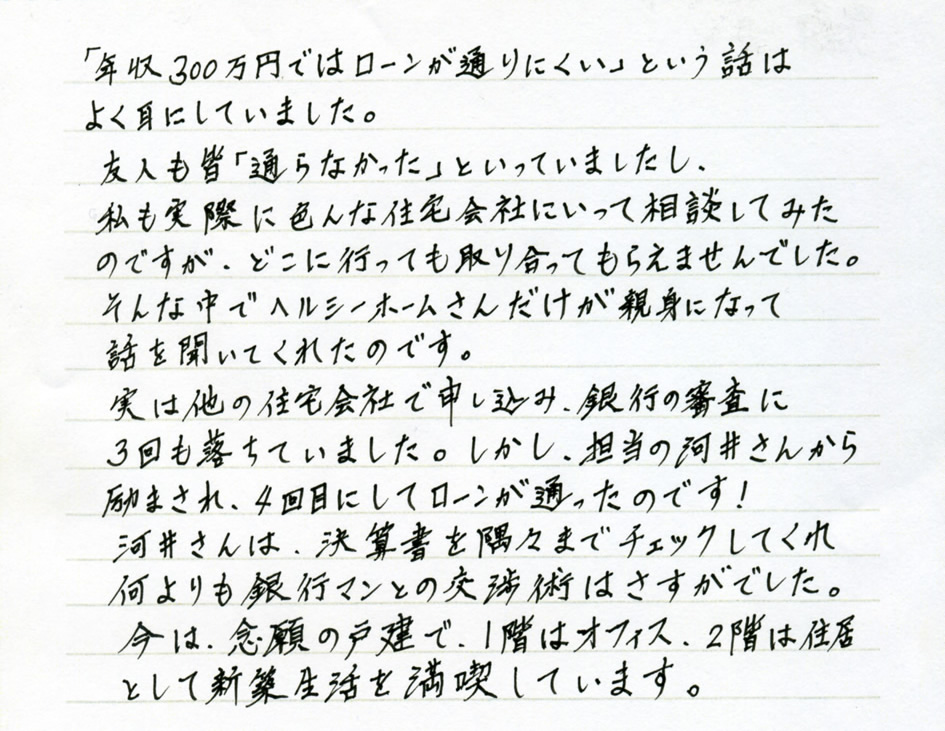 「年収300万円ではローンが通りにくい」という話は
よく耳にしていました。
友人も皆「通らなかった」といっていましたし、
私も実際に色んな住宅会社にいって相談してみた
のですが、どこに行っても取り合ってもらえませんでした。
そんな中でヘルシーホームさんだけが親身になって
話を聞いてくれたのです。
実は他の住宅会社で申し込み、銀行の審査に
3回も落ちていました。しかし、担当の河井さんから
励まされ、4回目にしてローンが通ったのです！
河井さんは、決算書を隅々までチェックしてくれ
何よりも銀行マンとの交渉術はさすがでした。
今は、念願の戸建で、1階はオフィス、2階は住居
として新築生活を満喫しています。